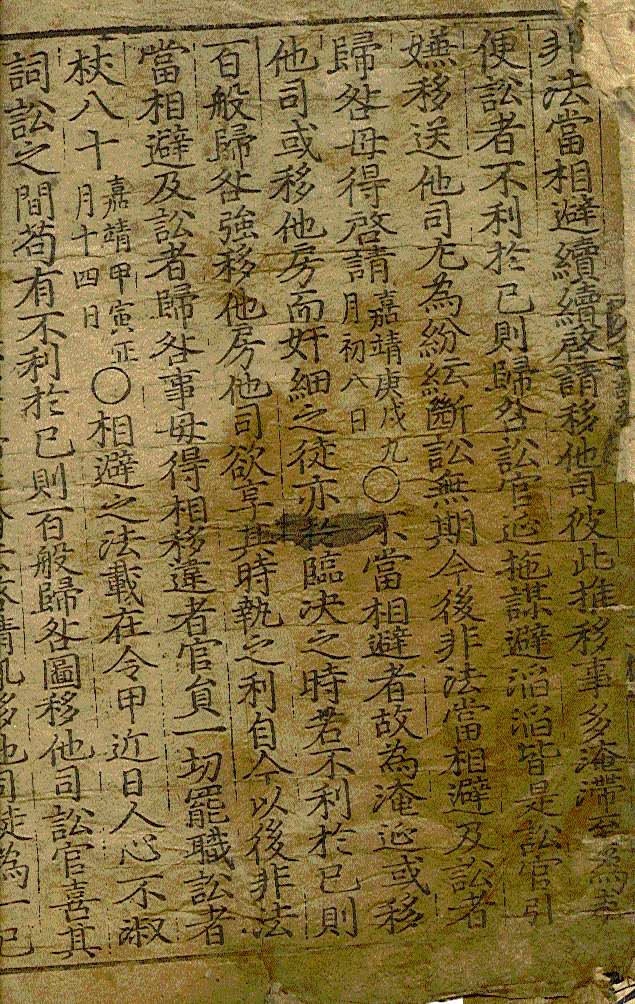 非法當相避續續啓請移他司彼此推移事多淹滯至爲
便訟者不利於己則歸咎訟官迤拖謀避滔滔皆是訟官引
嫌移送他司尤為紛紜斷訟無期今後非法當相避及訟者
歸咎毋得啓請嘉靖庚戌九月初八日○不當相避者故為淹延或移
他司或移他房而奸細之徒亦於臨决之時若不利於己則
百般歸咎強移他房他司欲享其時執之利自今以後非法
當相避及訟者歸咎事毋得相移違者官員一切罷職訟者
杖八十嘉靖甲寅正月十四日○相避之法載在令甲近日人心不淑
詞訟之間苟有不利於己則百般歸咎圖移他司訟官喜其